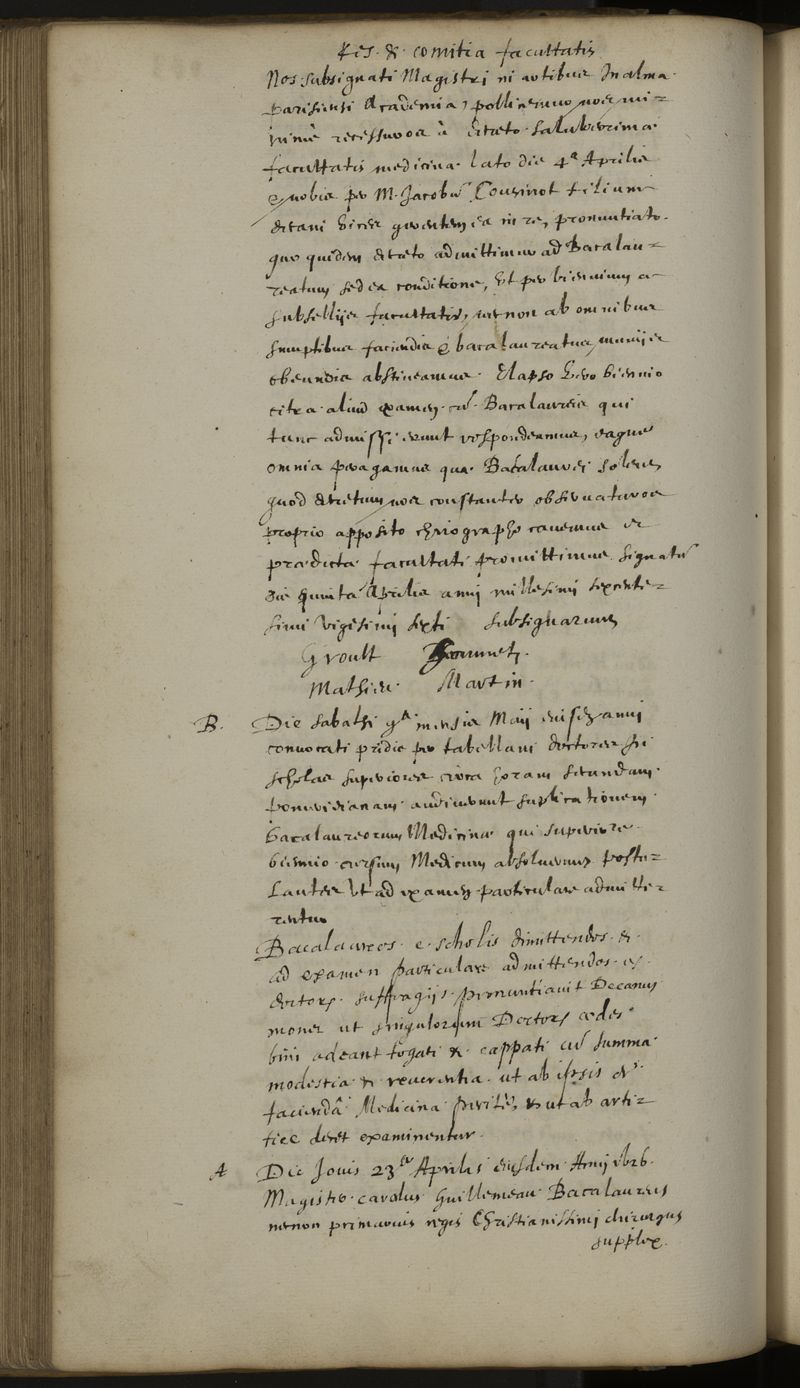 Res & comitia facultatis
Nos subsignati Magistri in artibus In alma
Parisiensi Academia, pollicemur nos mi=
nimè recessuros à decreto saluberrimæ
facultatis medicinæ lato die 4ª Aprilis
& nobis per M. Jacobũ Cousinot filium
decani vices gerentem ea in re, pronuntiato.
quo quidem decreto admittimur ad Bacalau=
reatum sed ea conditione, ut per biennium a
subsellijs facultatis, necnon ab omnibus
sumptibus faciendis & bacalaureatus munijs
obeundis abstineamus. Elapso vero biennio
citra aliud examen cũ Bacalaureis qui
tunc admissi erunt respondeamus, eaque
omnia peragamus quæ Bacalaurei solent,
quod decretum nos constanter observaturos
proprio apposito chirographo cavemus et
prædictæ facultati promittimus. signatũ
die quinta Aprilis anni millesimi sexcente=
simi vigesimi sexti subsignarunt
Groult
Mathieu Martin.
B. Die sabathi 9ª mensis Maij eiusdem anni
convocati pridie per tabellam doctores in
scholas superiores circa horam secundam
pomeridianam audiverunt suplicationem
bacalaureorum Medicinæ qui superiore
biennio cursum Medicum absolverunt postu=
lantes ut ad examen particulare admitte=
rentur
Bacalaureos e scholis dimittendos &
ad examen particulare admittendos ex
doctorum suffragijs pronuntiavit Decanus
monens ut singulorum Doctorum ædes
bini adeant togati & cappati cũ summa
modestia & reverentia ut ab ipsis de
faciendâ Medicina peritè, & ut ab arti=
fice decet examinentur.
A Die Jovis 23ª Aprilis eiusdem Anni 1626.
Magister carolus Guillemeau Bacalaureus
necnon primarius regis Christianissimi chirurgus
supplex.